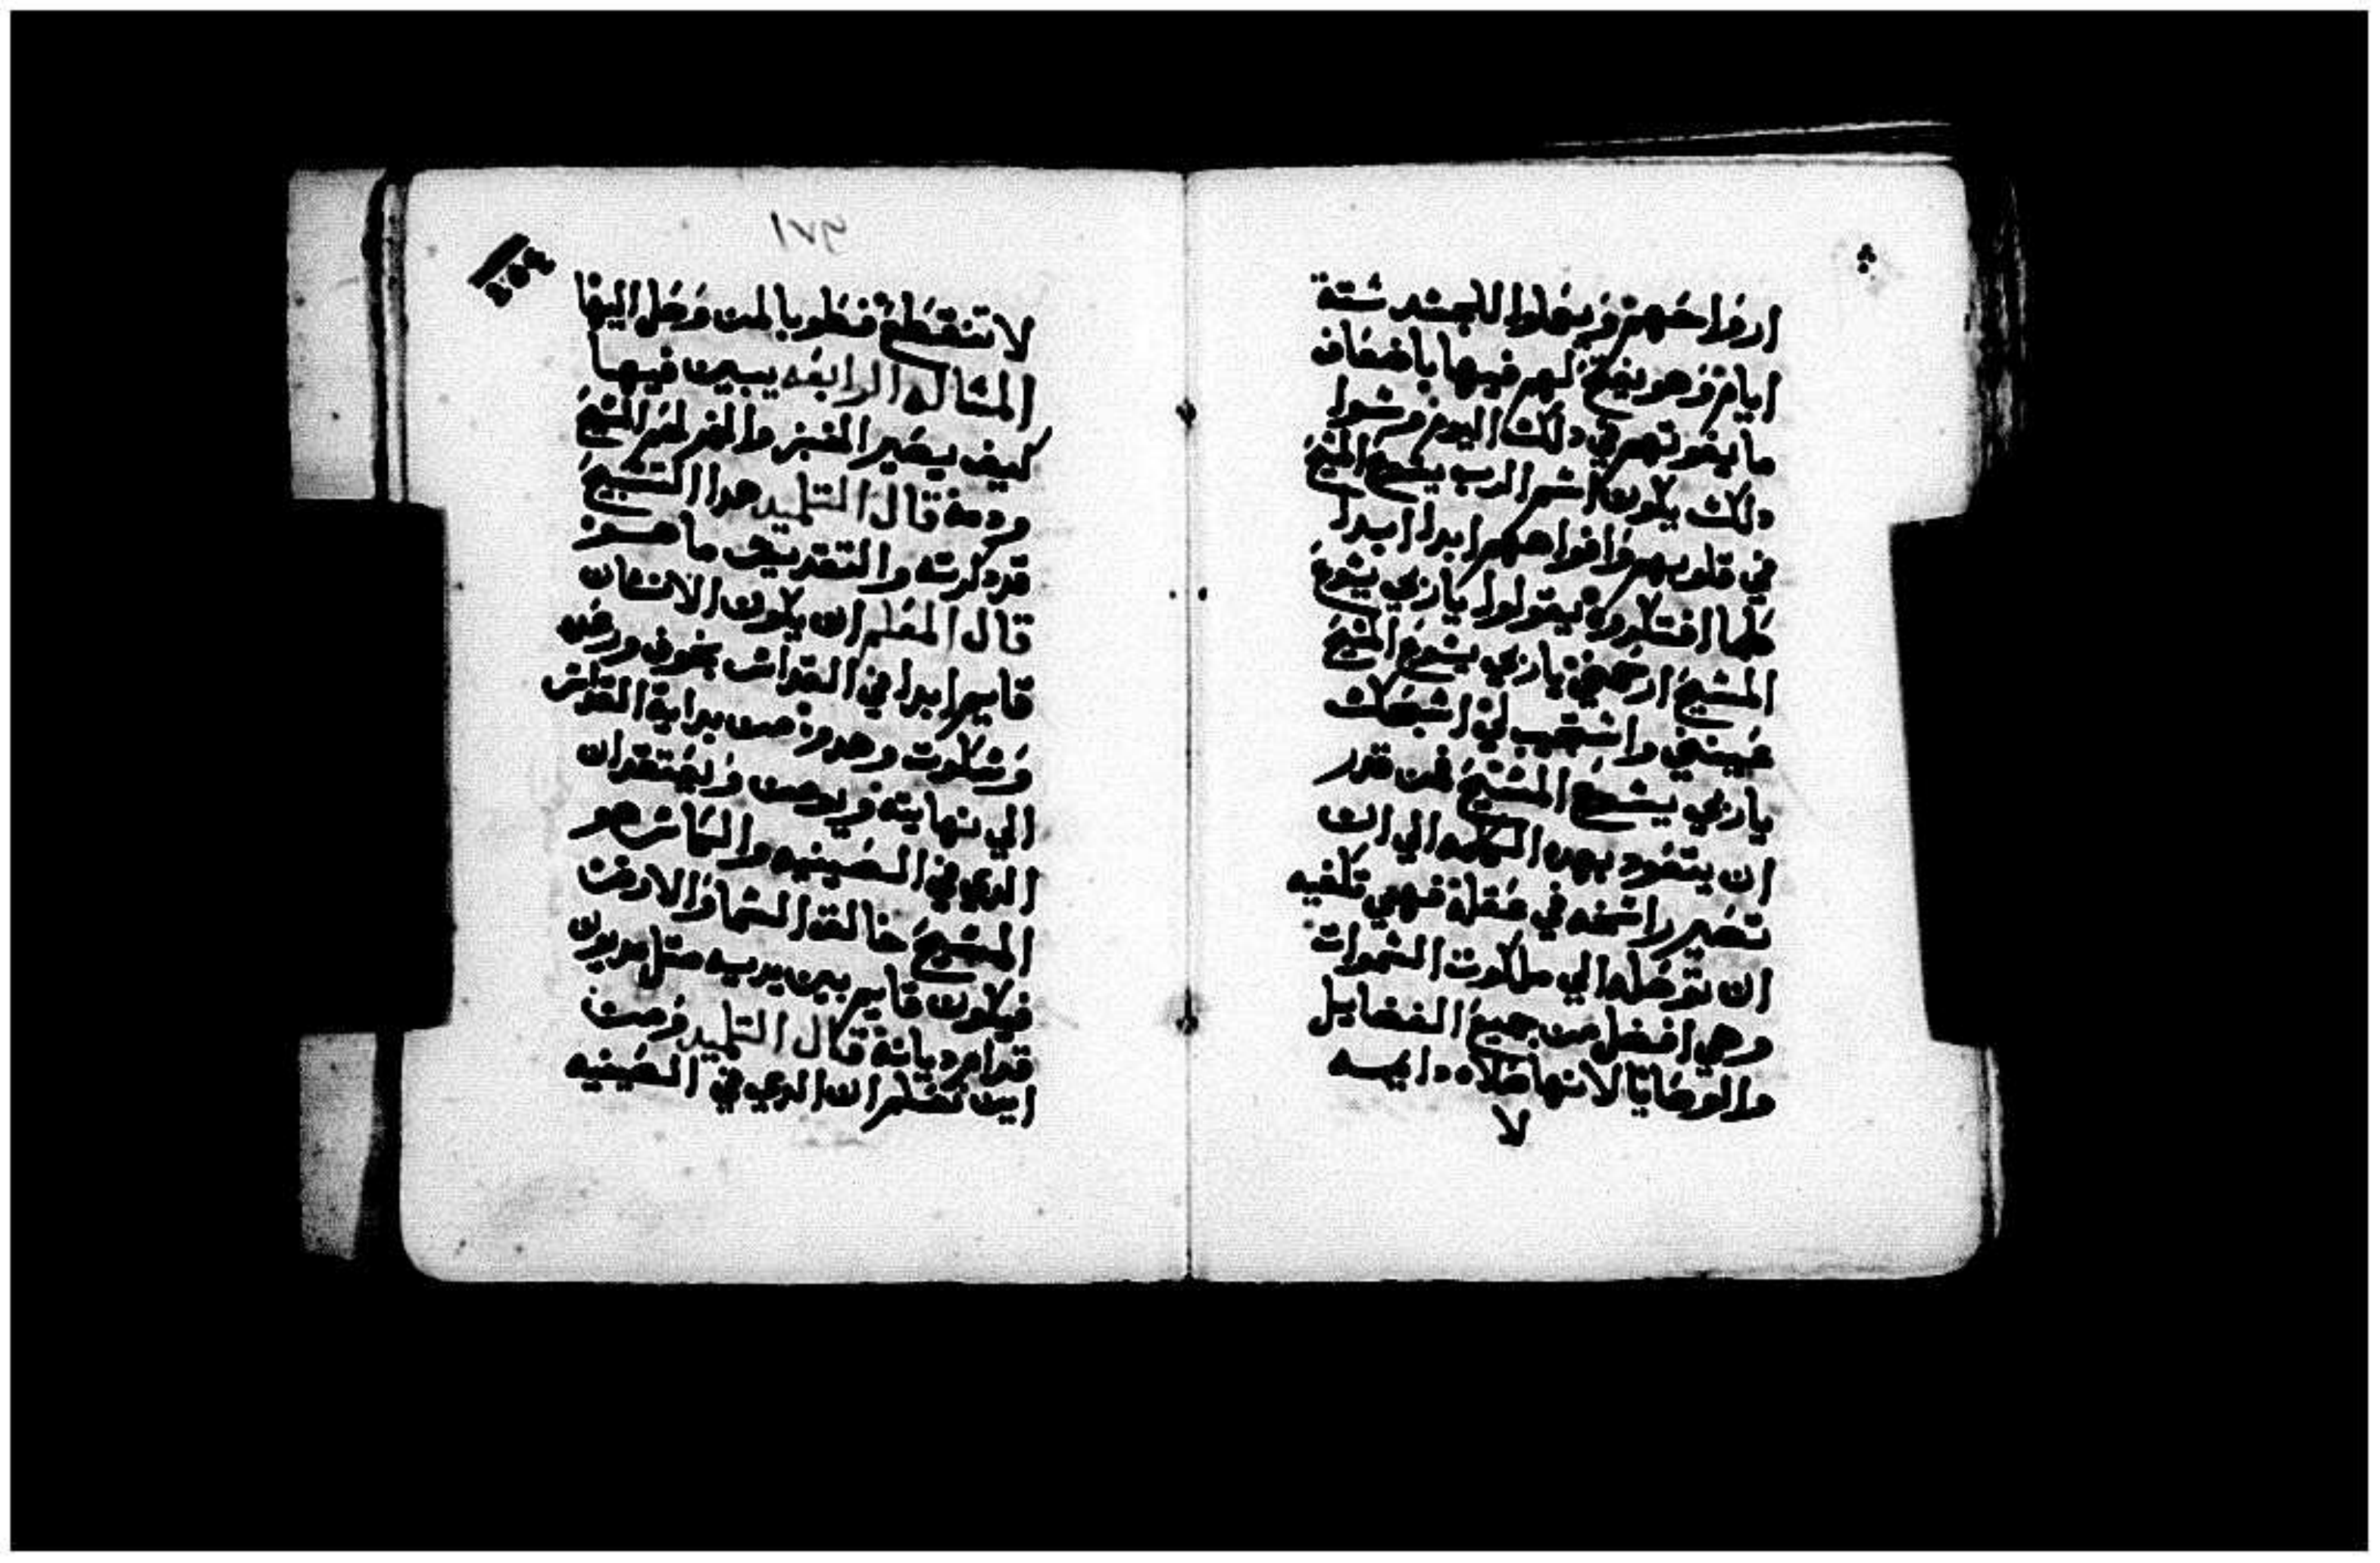 ارواحهم ويعملوا للجسد ستة
ايام وهو يفتح لهم فيها باضعاف
ما يفوتهم في دلك اليوم وسوا
دلك يكون اسم الرب يسوع المسيح
في قلوبهم وافواههم ابدا ابدا
كلما افتكروه يقولوا ياربي يسوع
المسيح ارحمني ياربي يسوع المسيح
عينني واستجيب لي اسبحك
ياربي يسوع المسيح فمن قدر
ان يتعود بهده الكلمه الي ان
تصير راسخه في عقله فهي تكفيه
ان توصله الي ملكوت السموات
وهي افضل من جميع الفضايل
والوصايا لانها صلاه دايمه
لا
لا تنقطع فطوبا لمن وصل اليها
المساله الرابعه يبين فيها
كيف يصير الخبز والخمر لحم المسيح
ودمه قال التلميد هدا التسبيح
قد دكرته والتقديس ما هو
قال المعلم ان يكون الانسان
قايم ابدا في القداس بخوف ورعده
وسكوت وهدو من بداية القداس
الي نهايته ويومن وليعتقد ان
الدي في الصينيه والكاس هو
المسيح خالق السما والارض
فيكون قايم بين يديه متل مديون
قدام ديانه قال التلميد ومن
اين نعلم ان الدي في الصينيه